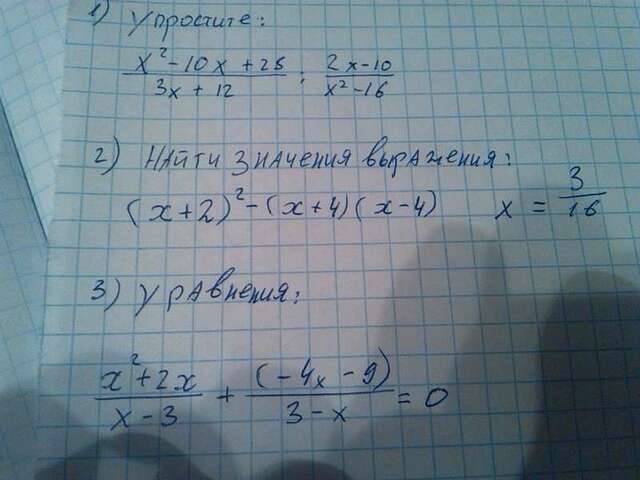 1) Упростите:
x²-10x+25 / 3x+12 : 2x-10 / x²-16
2) Найти значения выражения:
(x+2)²-(x+4)(x-4) x = 3/16
3) Уравнения:
x²+2x / x-3 + (-4x-9) / 3-x = 0